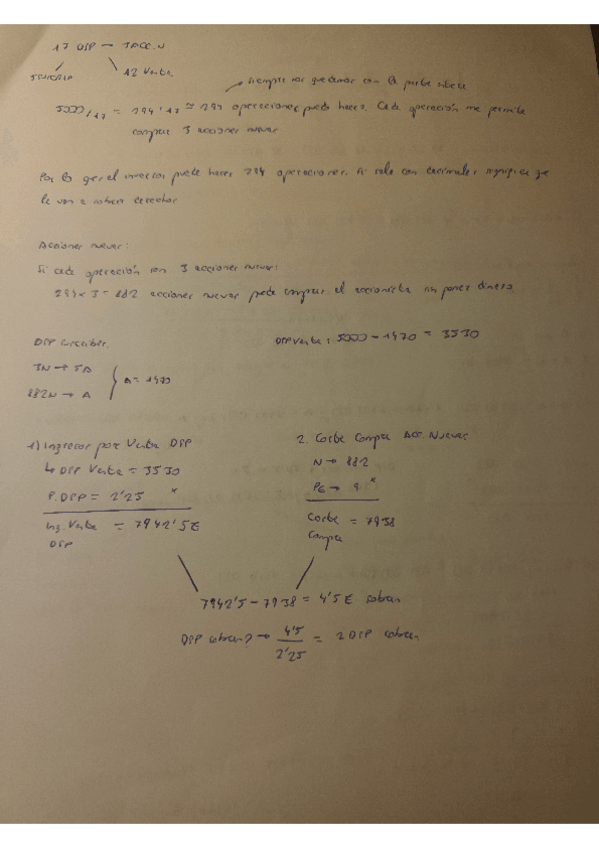 17 DSP → 3 ACC. N
12 Venta
siempre nos quedamos con la parte entera
5000/17 = 294'17 ≈ 294 operaciones puede hacer. Cada operación me permite
comprar 3 acciones nuevas
Por lo que el inversor puede hacer 294 operaciones. Si sale con decimales significa que
le van a sobrar derechos
Acciones nuevas:
Si cada operación son 3 acciones nuevas:
294 x 3 = 882 acciones nuevas puede comprar el accionista sin poner dinero
DSP suscribir.
DSP venta: 5000 - 1470 = 3530
3N → 5A
882N → A
A = 1470
1) Ingresos por Venta DSP
↳ DSP Venta = 3530
P. DSP = 2'25 x
Ing. Venta = 7942'5€
DSP
2. Coste Compra Acc. Nuevas
N → 882
PE → 9 x
Coste = 7938
Compra
7942'5 - 7938 = 4'5€ sobran
DSP sobran? → 4'5 / 2'25 = 2 DSP sobran